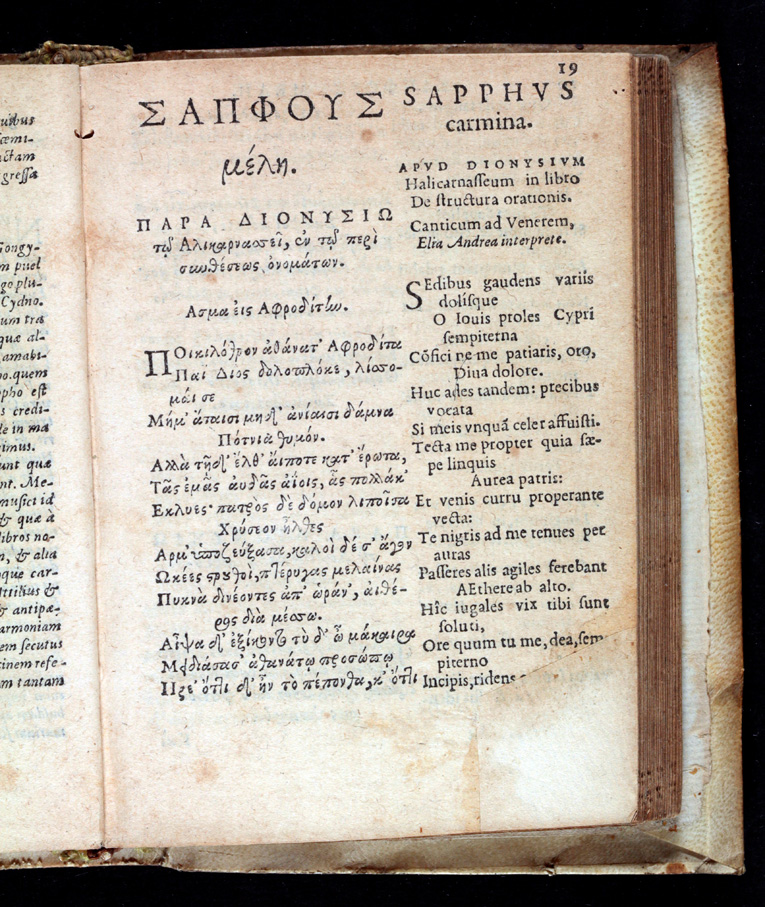 uibus
œmi-
ictam
gressa
Gongy-
m puel
go plu-
Cydno.
um tra
quæ al-
amabi-
o.quem
pho est
s credi-
de in ma
imus.
unt quæ
nt. Me-
musici id
& quæ à
libros no-
n, & alia
oque car-
ttilius &
& antipæ-
armoniam
em secutus
inem refe-
m tantam
19
ΣΑΠΦΟΥΣ
μέλη.
ΠΑΡΑ ΔΙΟΝΥΣΙΩ
τῷ Αλικαρνασεῖ, ἐν τῷ περὶ
συνθέσεως ὀνομάτων.
Ασμα εἰς Αφροδίτην.
ΠΟικιλόθρον ἀθάνατ' Αφροδίτα
Παῖ Διος δολοπλόκε, λίσσο-
μαί σε
Μή μ' ἄταισι μηδ' ἀνίαισι δάμνα
Πότνια θυμόν.
Αλλὰ τῇδ' ἔλθ' αἴποτε κατ' ἔρωτα,
Τᾶς ἐμᾶς αὐδᾶς ἀΐοις, ἃς πολλάκ'
Εκλυες· πατρὸς δὲ δόμον λιποῖσα
Χρύσεον ἦλθες
Αρμ' ὑποζεύξασα, καλοὶ δέ σ' ἄγον
Ωκέες στρουθοὶ, πτέρυγας μελαίνας
Πυκνὰ δινέοντες ἀπ' ὠράν', αἰθέ-
ρος διὰ μέσσω.
Αἶψα δ' ἐξίκοντο τὺ δ' ὦ μάκαιρα
Μειδιάσασ' ἀθανάτῳ προσώπῳ
Ηρε' ὅττι δ' ἦν τὸ πέπονθα, κ' ὅττι
SAPPHVS
carmina.
APVD DIONYSIVM
Halicarnasseum in libro
De structura orationis.
Canticum ad Venerem,
Elia Andrea interprete.
SEdibus gaudens variis
dolisque
O Iouis proles Cypri
sempiterna
Cōfici ne me patiaris, oro,
Diua dolore.
Huc ades tandem: precibus
vocata
Si meis vnquā celer affuisti.
Tecta me propter quia sæ-
pe linquis
Aurea patris:
Et venis curru properante
vecta:
Te nigris ad me tenues per
auras
Passeres alis agiles ferebant
AEthere ab alto.
Hîc iugales vix tibi sunt
soluti,
Ore quum tu me, dea, sem-
piterno
Incipis, ridens